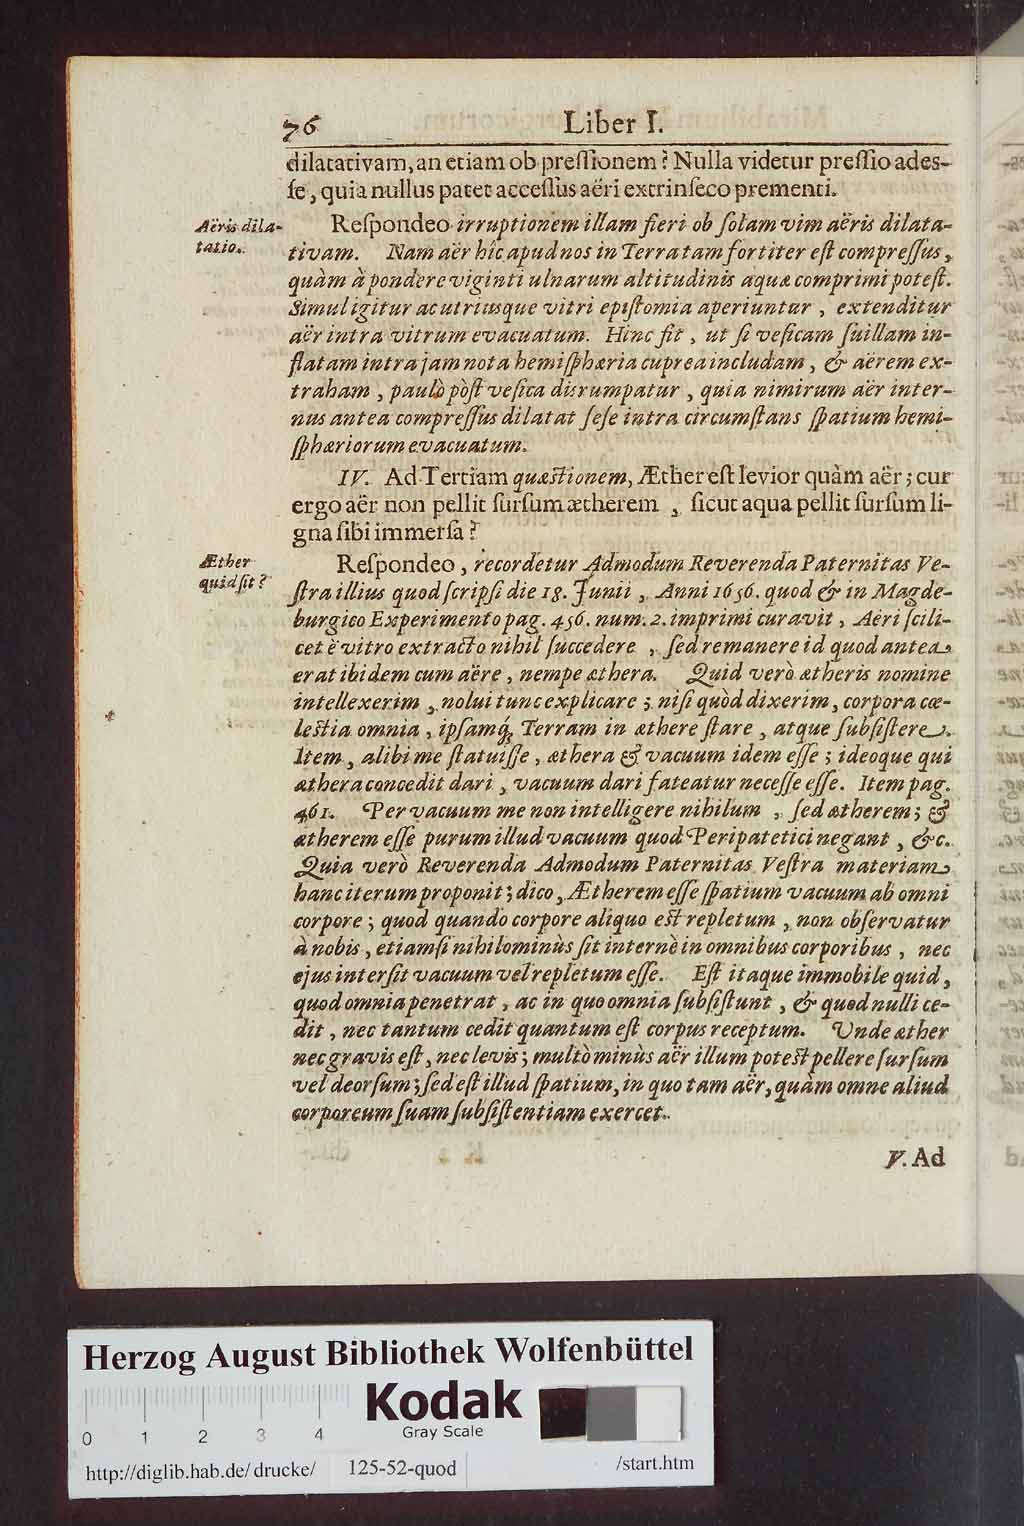 76 Liber I.
dilatativam, an etiam ob preſſionem? Nulla videtur preſſio adeſ-
ſe, quia nullus patet acceſſus aëri extrinſeco prementi.
Aëris dila-
tatio.
Reſpondeo irruptionem illam fieri ob ſolam vim aëris dilata-
tivam. Nam aër hîc apud nos in Terra tam fortiter eſt compreſſus,
quàm à pondere viginti ulnarum altitudinis aquæ comprimi poteſt.
Simul igitur ac utriusque vitri epiſtomia aperiuntur, extenditur
aër intra vitrum evacuatum. Hinc fit, ut ſi veſicam ſuillam in-
flatam intra jam nota hemiſphæria cuprea includam, & aërem ex-
traham, paulò pòſt veſica disrumpatur, quia nimirum aër inter-
nus antea compreſſus dilatat ſeſe intra circumſtans ſpatium hemi-
ſphæriorum evacuatum.
IV. Ad Tertiam quæſtionem, Æther eſt levior quàm aër; cur
ergo aër non pellit ſurſum ætherem, ſicut aqua pellit ſurſum li-
gna ſibi immerſa?
Æther
quid ſit?
Reſpondeo, recordetur Admodum Reverenda Paternitas Ve-
ſtra illius quod ſcripſi die 18. Junii, Anni 1656. quod & in Magde-
burgico Experimento pag. 456. num. 2. imprimi curavit, Aëri ſcili-
cet è vitro extracto nihil ſuccedere, ſed remanere id quod antea
erat ibidem cum aëre, nempe æthera. Quid verò ætheris nomine
intellexerim, nolui tunc explicare; niſi quòd dixerim, corpora cœ-
leſtia omnia, ipſamq́; Terram in æthere ſtare, atque ſubſiſtere.
Item, alibi me ſtatuiſſe, æthera & vacuum idem eſſe; ideoque qui
æthera concedit dari, vacuum dari fateatur neceſſe eſſe. Item pag.
461. Per vacuum me non intelligere nihilum, ſed ætherem; &
ætherem eſſe purum illud vacuum quod Peripatetici negant, &c.
Quia verò Reverenda Admodum Paternitas Veſtra materiam
hanc iterum proponit; dico, Ætherem eſſe ſpatium vacuum ab omni
corpore; quod quando corpore aliquo eſt repletum, non obſervatur
à nobis, etiamſi nihilominùs ſit internè in omnibus corporibus, nec
ejus interſit vacuum vel repletum eſſe. Eſt itaque immobile quid,
quod omnia penetrat, ac in quo omnia ſubſiſtunt, & quod nulli ce-
dit, nec tantum cedit quantum eſt corpus receptum. Unde æther
nec gravis eſt, nec levis; multò minùs aër illum poteſt pellere ſurſum
vel deorſum; ſed eſt illud ſpatium, in quo tam aër, quàm omne aliud
corporeum ſuam ſubſiſtentiam exercet.
V. Ad
Herzog August Bibliothek Wolfenbüttel
Kodak
Gray Scale
0 1 2 3 4
http://diglib.hab.de/drucke/ 125-52-quod /start.htm